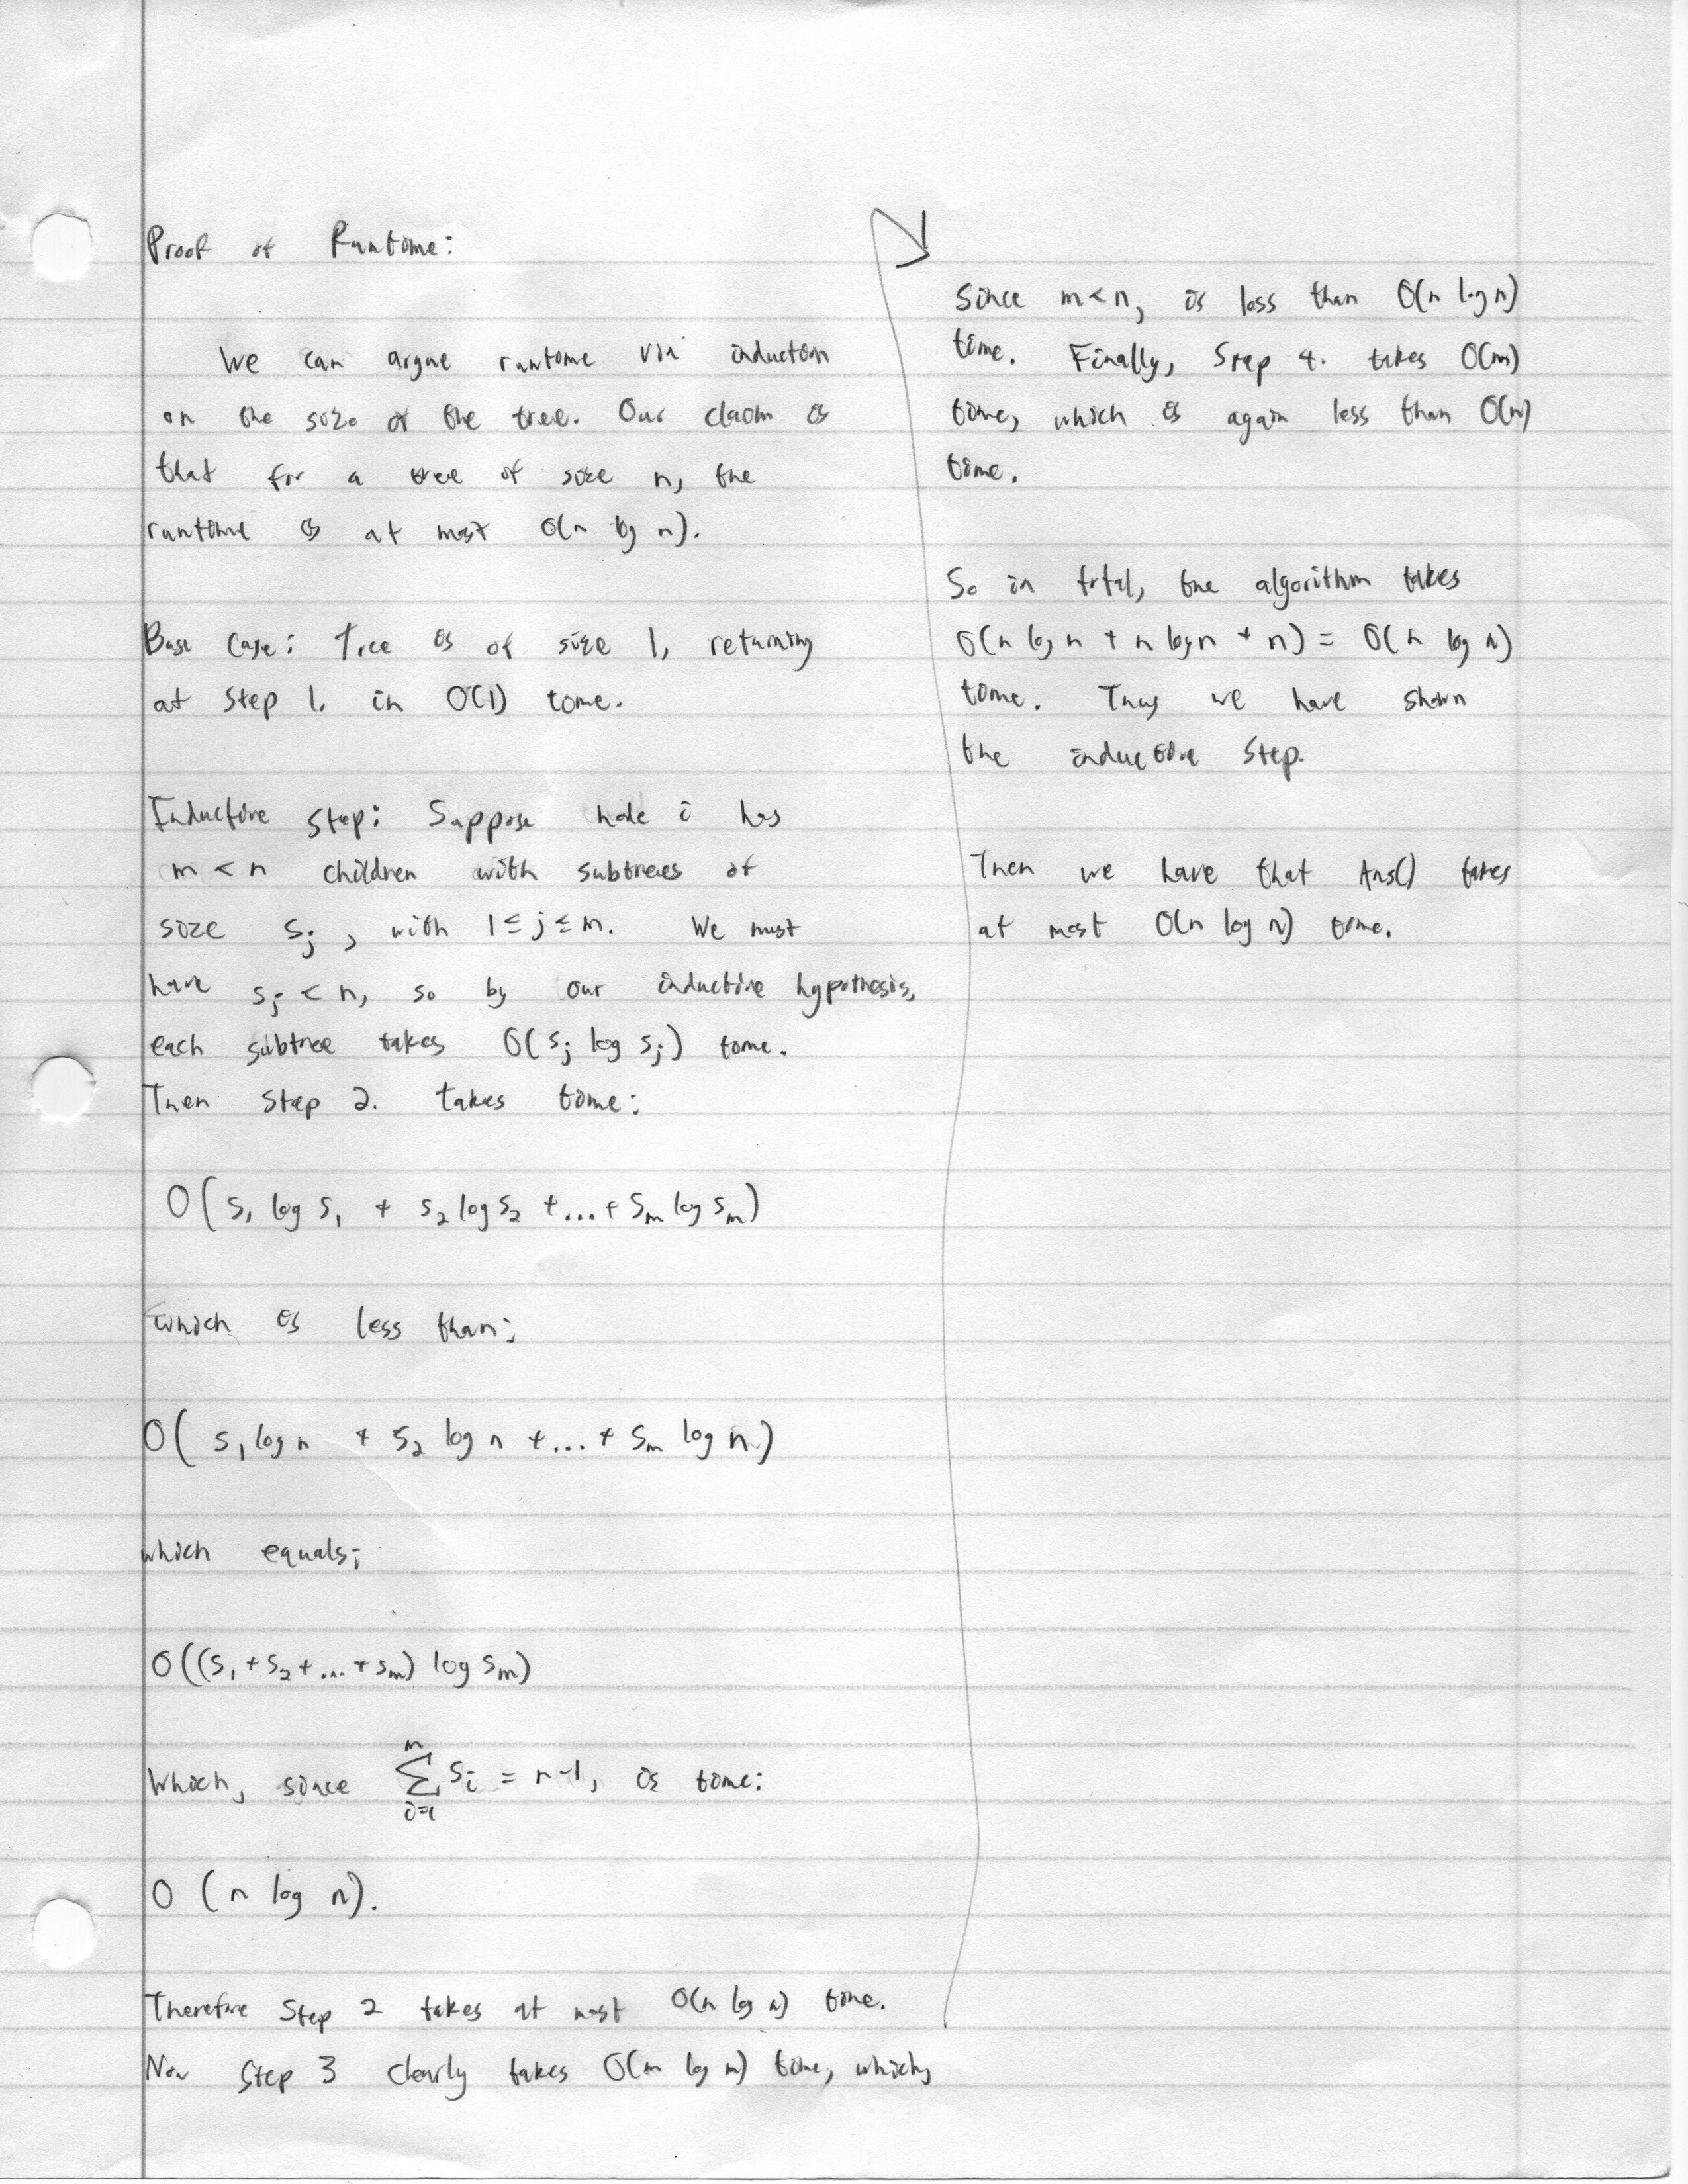 Proof of Runtime:
We can argue runtime via induction
on the size of the tree. Our claim is
that for a tree of size n, the
runtime is at most O(n log n).
Base Case: Tree is of size 1, returning
at Step 1. in O(1) time.
Inductive Step: Suppose node i has
m < n children with subtrees of
size s_j, with 1 ≤ j ≤ m. We must
have s_j < n, so by our inductive hypothesis,
each subtree takes O(s_j log s_j) time.
Then Step 2. takes time:
O(s_1 log s_1 + s_2 log s_2 + ... + s_m log s_m)
which is less than:
O(s_1 log n + s_2 log n + ... + s_m log n)
which equals:
O((s_1 + s_2 + ... + s_m) log s_m)
Which, since ∑_{i=1}^{m} s_i = n-1, is time:
O(n log n).
Therefore Step 2 takes at most O(n log n) time.
Now Step 3 clearly takes O(m log m) time, which,
Since m < n, is less than O(n log n)
time. Finally, Step 4. takes O(m)
time, which is again less than O(n)
time.
So in total, the algorithm takes
O(n log n + n log n + n) = O(n log n)
time. Thus we have shown
the inductive step.
Then we have that Ans() takes
at most O(n log n) time.